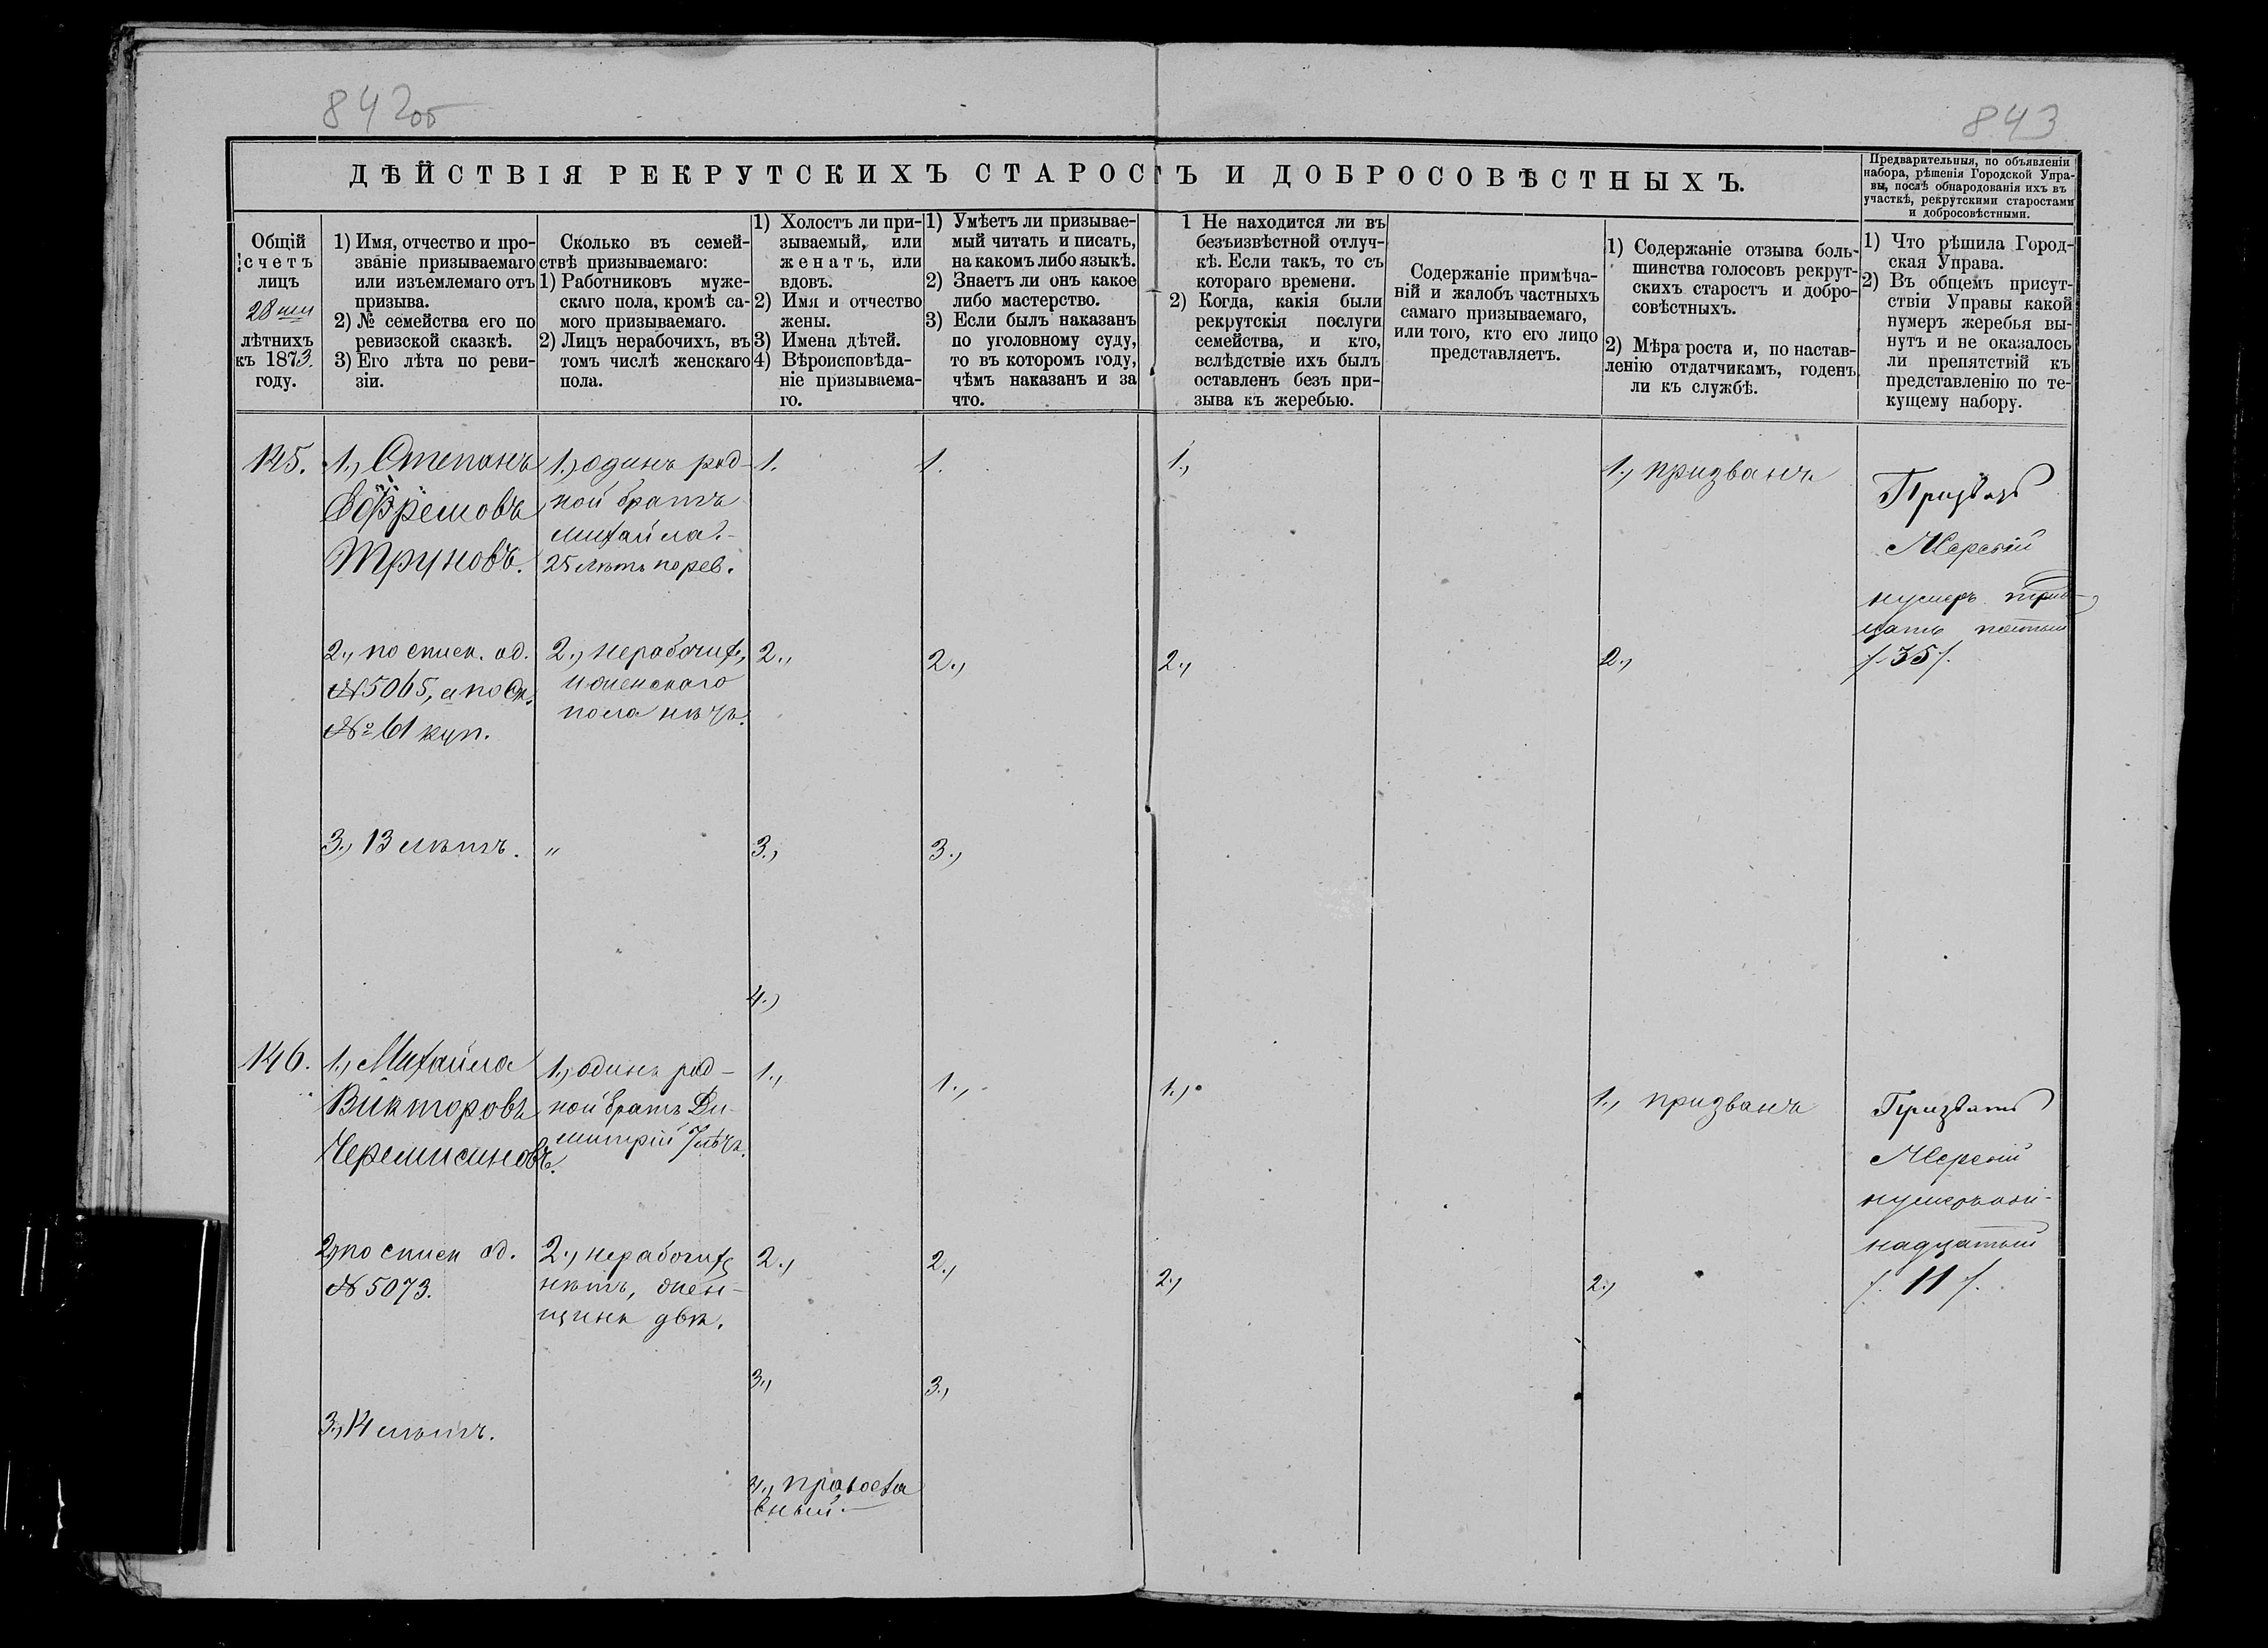 842об
843
ДѢЙСТВІЯ РЕКРУТСКИХЪ СТАРОСТЪ И ДОБРОСОВѢСТНЫХЪ.
Предварительныя, по объявленіи
набора, рѣшенія Городской Упра-
вы, послѣ обнародованія ихъ въ
участкѣ, рекрутскими старостами
и добросовѣстными.
Общій
счетъ
лицъ
28ми
лѣтнихъ
къ 1873.
году.
1) Имя, отчество и про-
званіе призываемаго
или изъемлемаго отъ
призыва.
2) № семейства его по
ревизской сказкѣ.
3) Его лѣта по реви-
зіи.
Сколько въ семей-
ствѣ призываемаго:
1) Работниковъ муже-
скаго пола, кромѣ са-
мого призываемаго.
2) Лицъ нерабочихъ, въ
томъ числѣ женскаго
пола.
1) Холостъ ли при-
зываемый, или
женатъ, или
вдовъ.
2) Имя и отчество
жены.
3) Имена дѣтей.
4) Вѣроисповѣда-
ніе призываема-
го.
1) Умѣетъ ли призывае-
мый читать и писать,
на какомъ либо языкѣ.
2) Знаетъ ли онъ какое
либо мастерство.
3) Если былъ наказанъ
по уголовному суду,
то въ которомъ году,
чѣмъ наказанъ и за
что.
1 Не находится ли въ
безъизвѣстной отлуч-
кѣ. Если такъ, то съ
котораго времени.
2) Когда, какія были
рекрутскія послуги
семейства, и кто,
вслѣдствіе ихъ былъ
оставленъ безъ при-
зыва къ жеребью.
Содержаніе примѣча-
ній и жалобъ частныхъ
самаго призываемаго,
или того, кто его лицо
представляетъ.
1) Содержаніе отзыва боль-
шинства голосовъ рекрут-
скихъ старостъ и добро-
совѣстныхъ.
2) Мѣра роста и, по настав-
ленію отдатчикамъ, годенъ
ли къ службѣ.
1) Что рѣшила Город-
ская Управа.
2) Въ общемъ присут-
ствіи Управы какой
нумеръ жеребья вы-
нутъ и не оказалось
ли препятствій къ
представленію по те-
кущему набору.
145.
1., Степанъ
Ефремовъ
Труновъ.
2., по списк. од.
№ 5065, а по Ок.
№ 61 куп.
3., 13 лѣтъ.
1., одинъ род-
ной братъ
Михайла.-
25 лѣтъ по рев.
2., нерабочихъ,
и женскаго
пола нѣтъ.
"
1.
2.,
3.,
4.,
1.
2.,
3.,
1.,
2.,
1., призванъ
2.,
Призвать
Жеребій
нумеръ трид-
цать пятый
/. 35 /.
146.
1., Михайла
Викторовъ
Черемисиновъ.
2., по списк од.
№ 5073.
3., 14 лѣтъ.
1., одинъ род-
ной братъ Ди-
митрій 7 лѣтъ.
2., нерабочихъ
нѣтъ, жен-
щинъ двѣ.
1.,
2.,
3.,
4., православный.
1.,
2.,
3.,
1.,
2.,
1., призванъ
2.,
Призвать
Жеребій
нумеръ оди-
надцатый
/. 11 /.